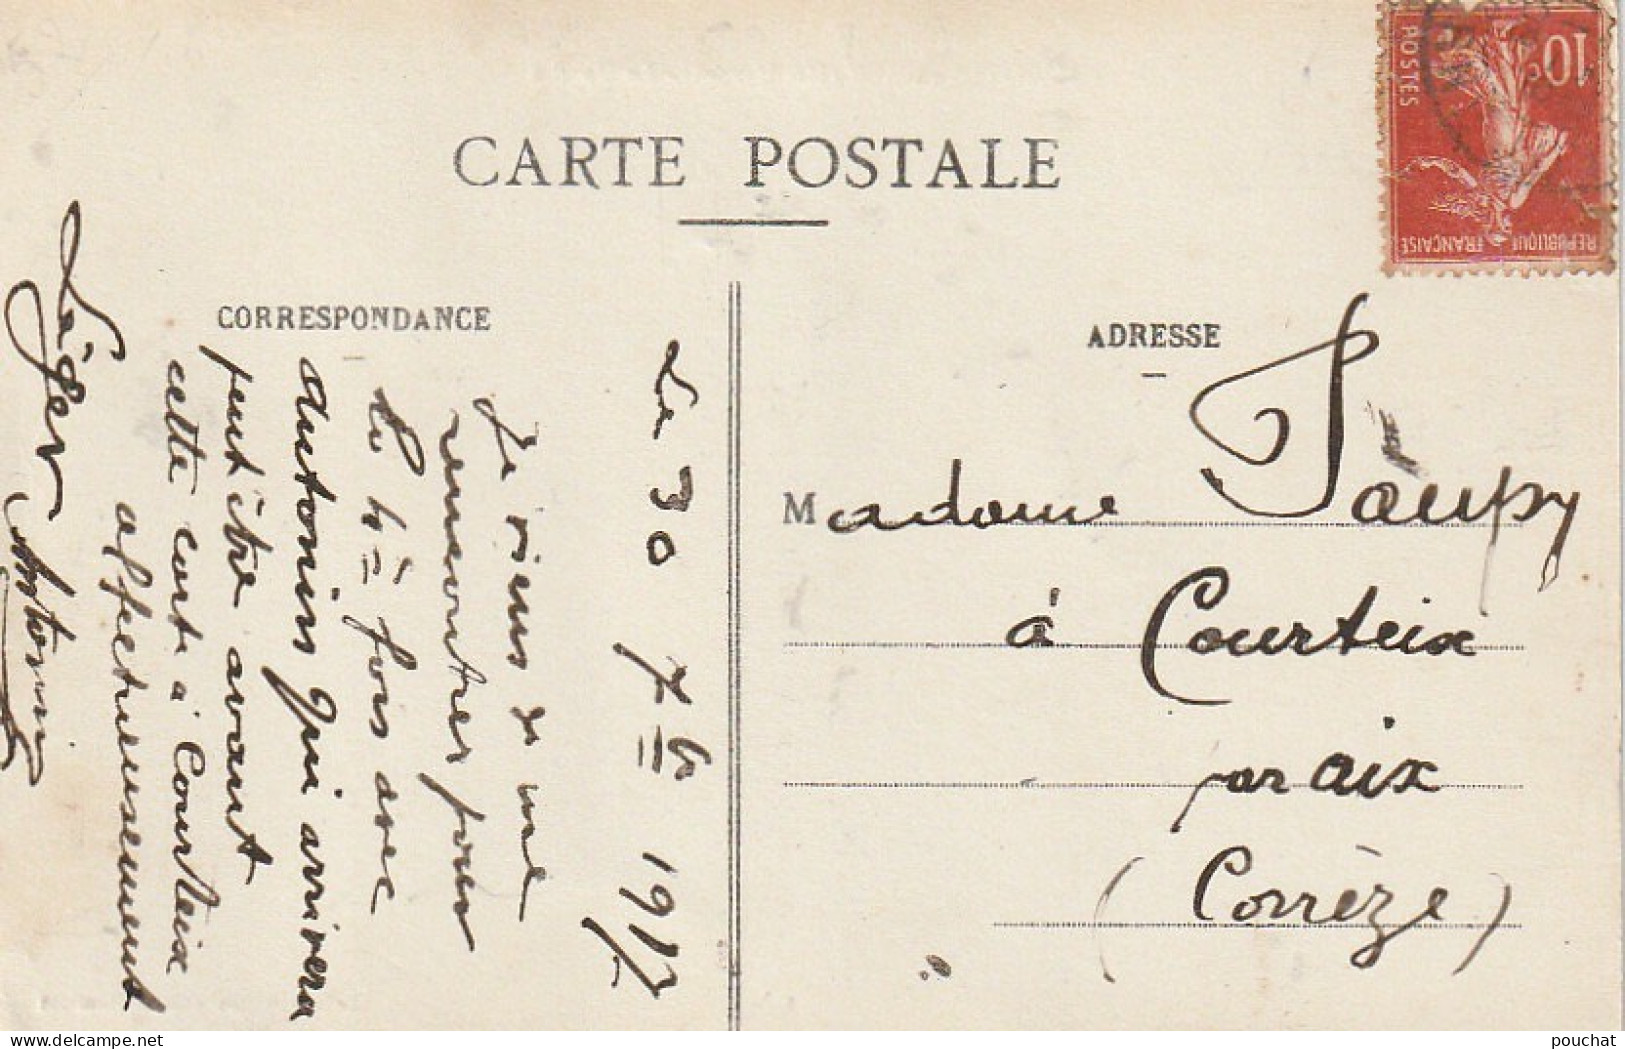 CARTE POSTALE
CORRESPONDANCE
Le 30 7bre 1917
Je viens de me
rencontrer pour
la 1ère fois avec
Antonin qui arrivera
peut être avant
cette carte à Courteix
affectueusement
Léger Antonin
ADRESSE
Madame Paupy
à Courteix
par aix
(Corrèze)
10
POSTES
REPUBLIQUE FRANÇAISE
pouchat